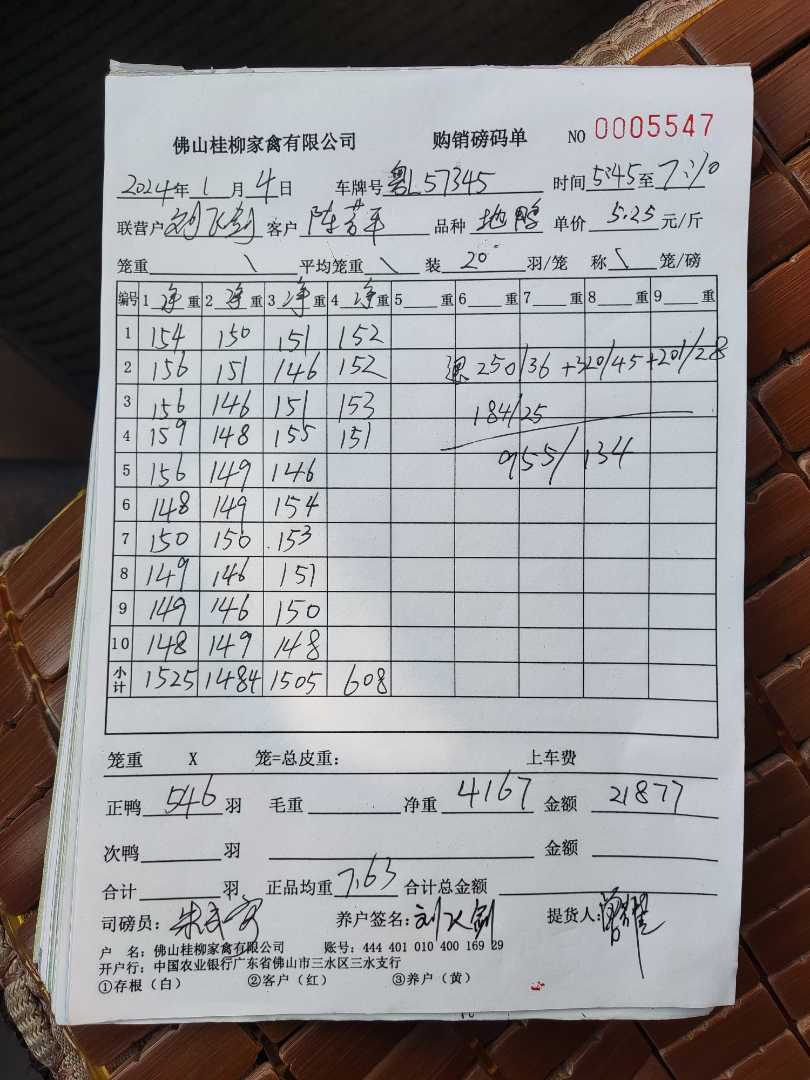 佛山桂柳家禽有限公司 购销磅码单 NO 0005547
2024年 1月 4日 车牌号 粤L57345 时间 5:45至7:10
联营户 刘飞剑 客户 陈芳平 品种 地鸭 单价 5.25 元/斤
笼重 \ 平均笼重 \ 装 20 羽/笼 称 \ 笼/磅
编号 1 净 重 2 净 重 3 净 重 4 净 重 5 重 6 重 7 重 8 重 9 重
1 154 150 151 152
2 156 151 146 152 250/36 +320/45 +201/28
3 156 146 151 153 184/25
4 159 148 155 151 955/134
5 156 149 146
6 148 149 154
7 150 150 153
8 149 146 151
9 149 146 150
10 148 149 148
小计 1525 1484 1505 608
笼重 X 笼=总皮重: 上车费
正鸭 546 羽 毛重 净重 4167 金额 21877
次鸭 羽 金额
合计 羽 正品均重 7.63 合计总金额
司磅员: 养户签名: 刘飞剑 提货人:
户 名: 佛山桂柳家禽有限公司 账号: 444 401 010 400 169 29
开户行: 中国农业银行广东省佛山市三水区三水支行
①存根(白) ②客户(红) ③养户(黄)